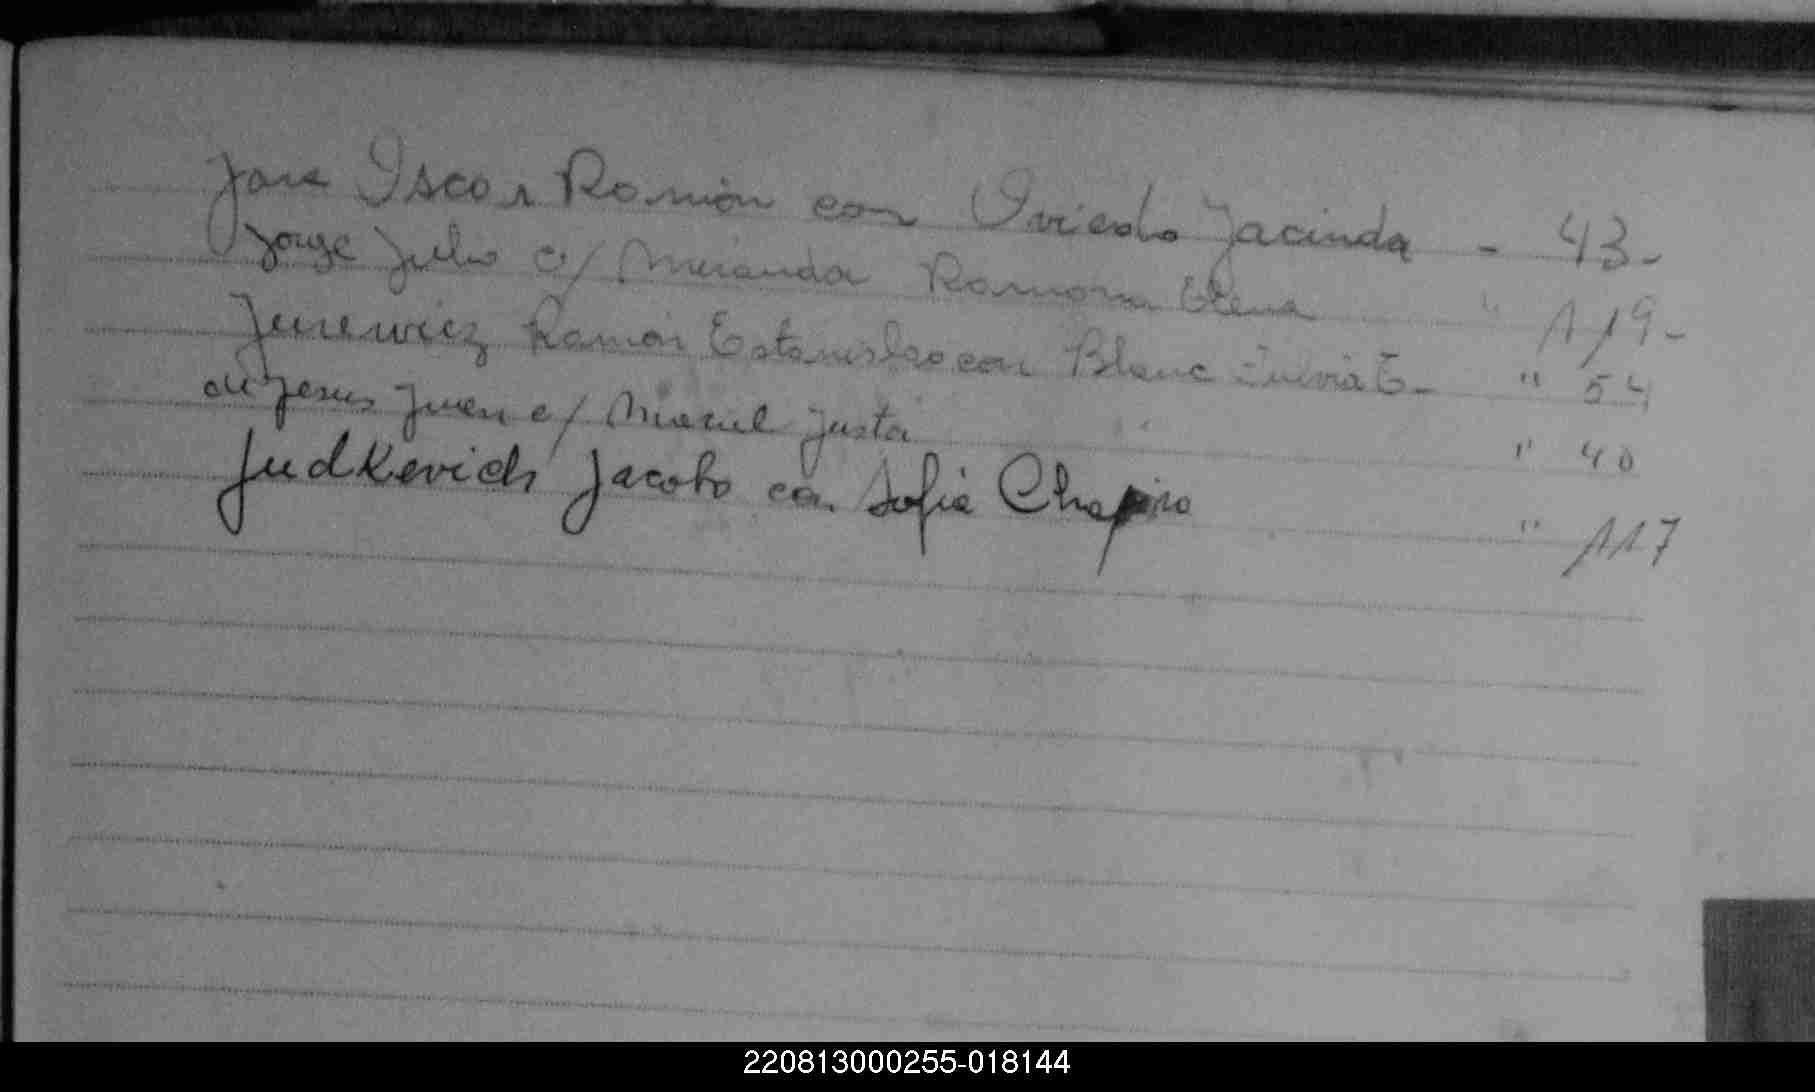 Jose Oscar Ramón con Oviedo Jacinda - 43-
Jorge Julio c/ Miranda Ramona Elena " 119-
Jurewicz Ramón Estanislao con Blanc Fulvia E- " 54
de Jesus Juan c/ Maciel Justa " 40
Judkevich Jacobo con Sofia Chapiro " 117
220813000255-018144